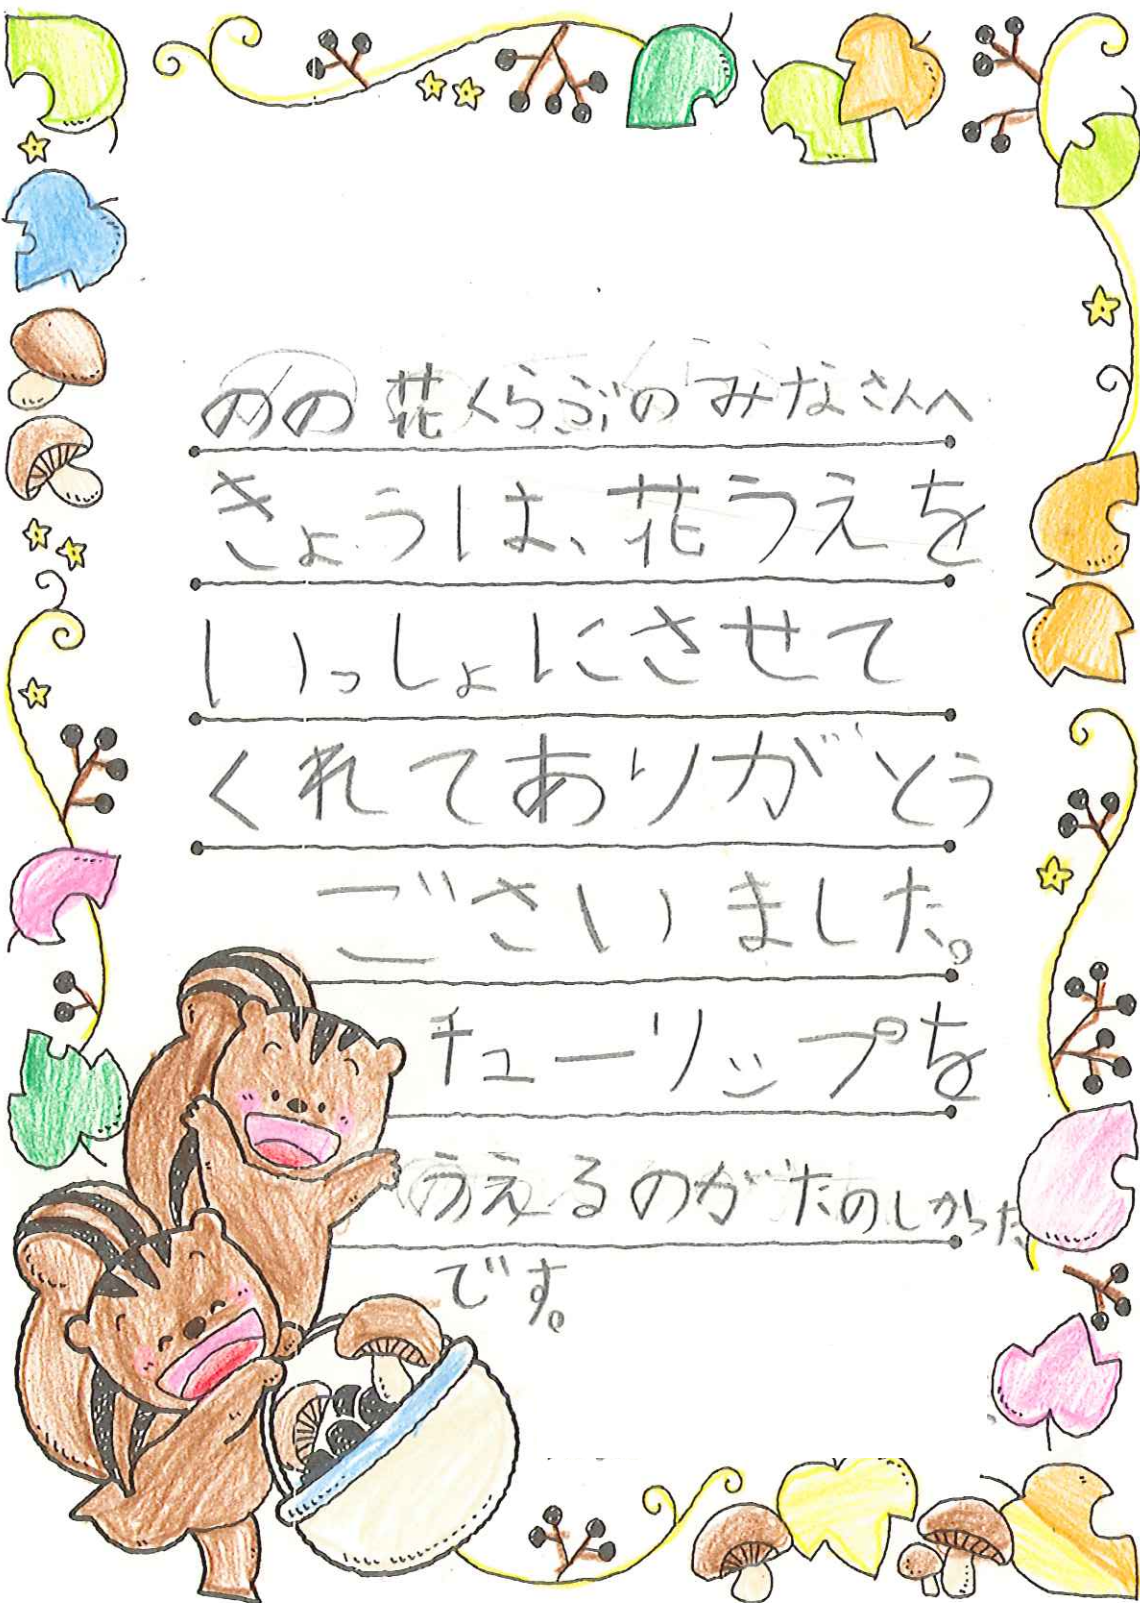 のの花くらぶのみなさんへ
きょうは、花うえを
いっしょにさせて
くれてありがとう
ごさいました。
チューリップを
うえるのがたのしかった
です。